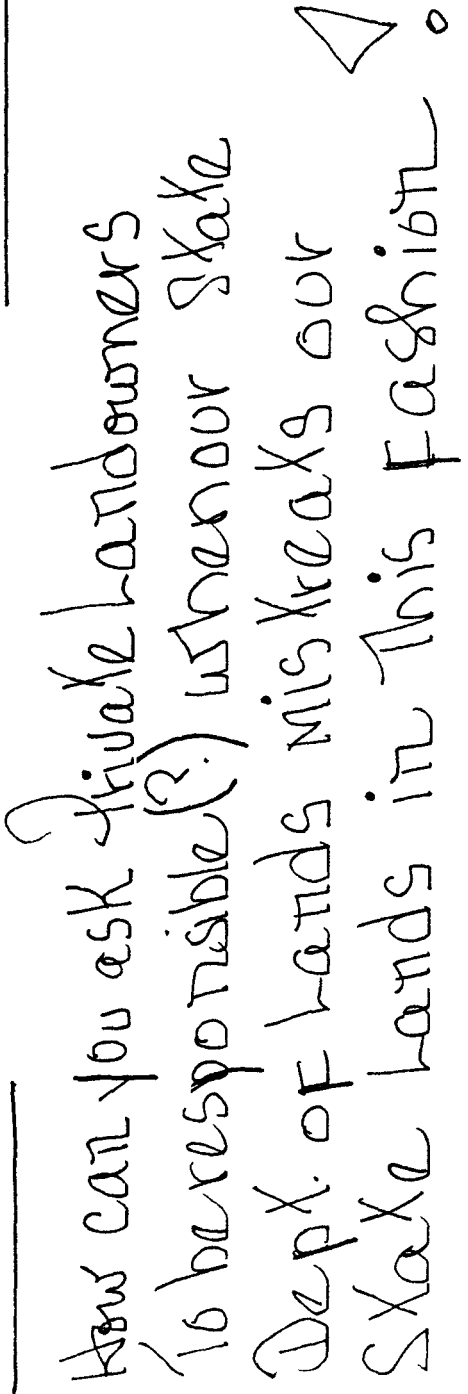 How can you ask Private Landowners
To be responsible (?) when our State
Dept. of Lands Mistreats our
State Lands in This Fashion!